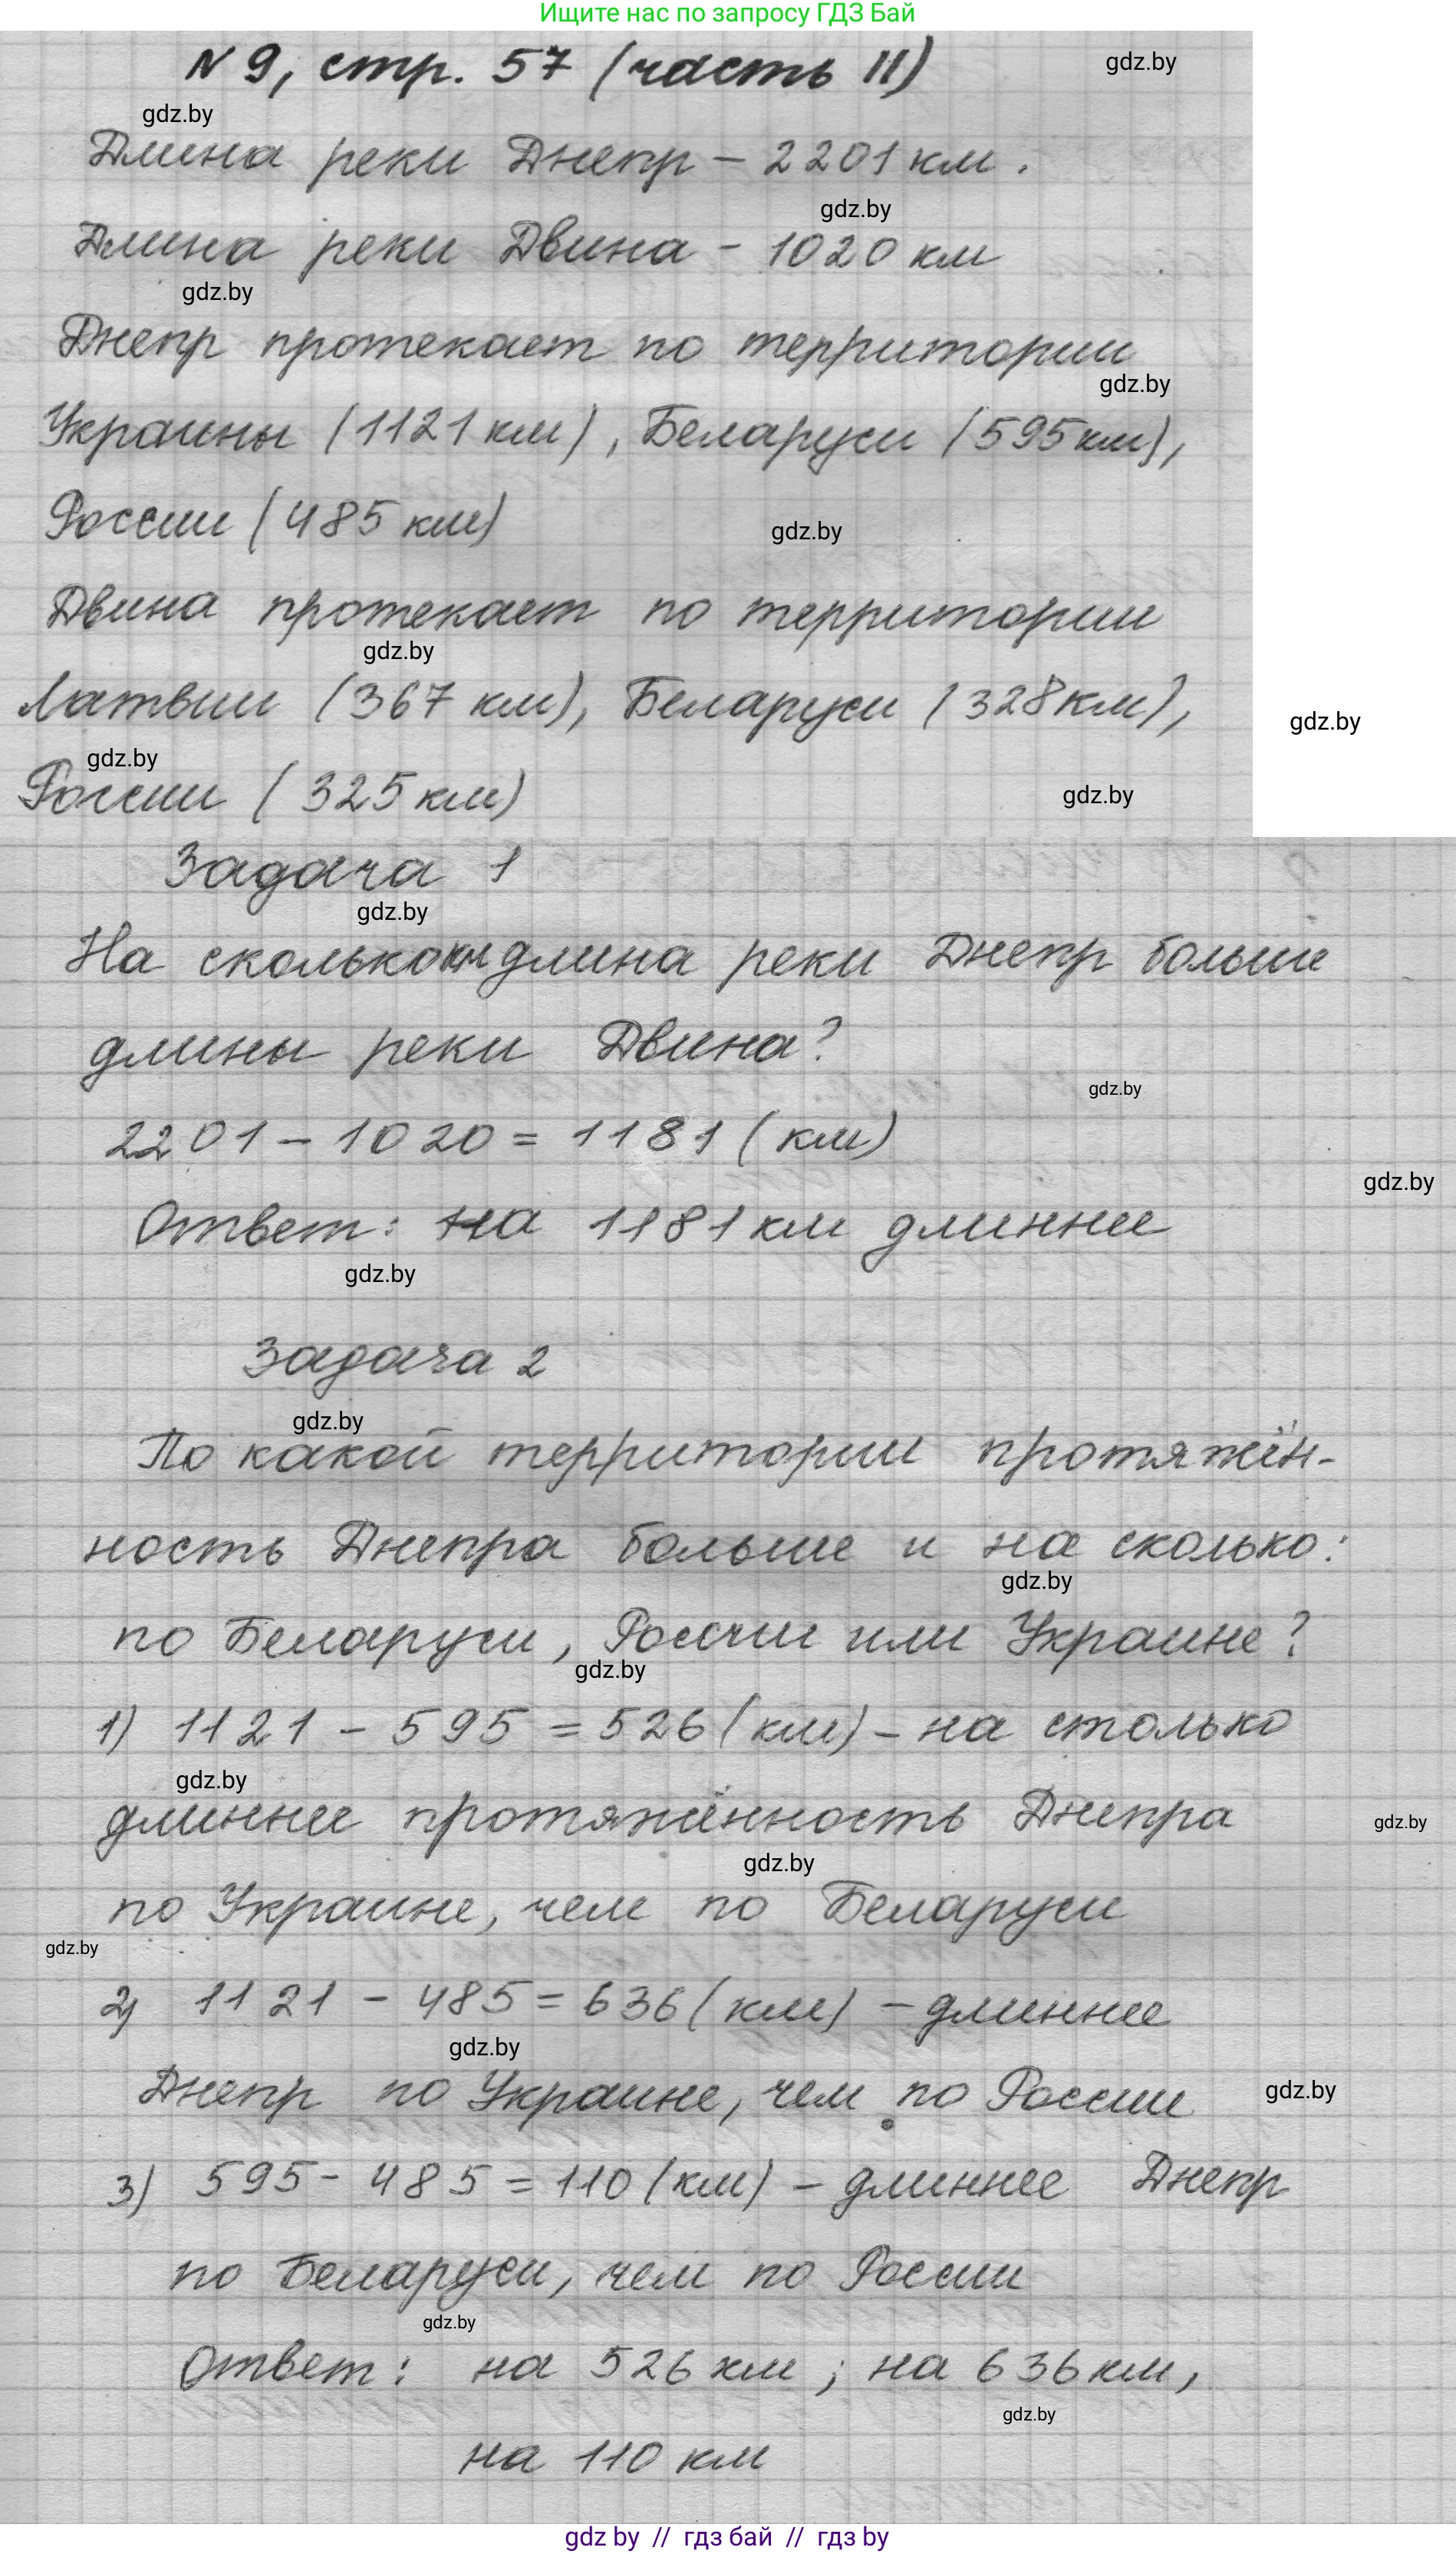 Ищите нас по запросу ГДЗ Бай
N 9, стр. 57 (часть II)
gdz.by
gdz.by
Длина реки Днепр – 2201 км.
gdz.by
Длина реки Двина – 1020 км
gdz.by
Днепр протекает по территории
gdz.by
Украины (1121 км), Беларуси (595 км),
России (485 км)
gdz.by
Двина протекает по территории
gdz.by
Латвии (367 км), Беларуси (328 км),
gdz.by
gdz.by
России (325 км)
gdz.by
Задача 1
gdz.by
На сколько км длина реки Днепр больше
длины реки Двина?
gdz.by
2201 – 1020 = 1181 (км)
gdz.by
Ответ: на 1181 км длиннее
gdz.by
Задача 2
gdz.by
По какой территории протяжён-
ность Днепра больше и на сколько:
gdz.by
по Беларуси, России или Украине?
gdz.by
1) 1121 – 595 = 526 (км) – на столько
gdz.by
длиннее протяжённость Днепра
gdz.by
gdz.by
по Украине, чем по Беларуси
gdz.by
2) 1121 – 485 = 636 (км) – длиннее
gdz.by
Днепр по Украине, чем по России
gdz.by
3) 595 – 485 = 110 (км) – длиннее Днепр
по Беларуси, чем по России
gdz.by
Ответ: на 526 км; на 636 км,
gdz.by
на 110 км
gdz by // гдз бай // гдз by